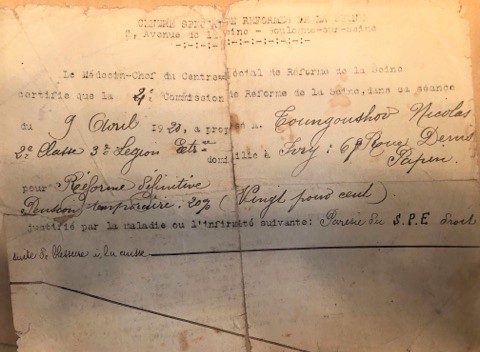 CENTRE SPECIAL DE REFORMES DE LA SEINE
Avenue de la Seine - Boulogne-sur-Seine
-:-:-:-:-:-:-:-:-:-:-
Le Médecin-Chef du Centre Spécial de Réforme de la Seine
certifie que la 2e Commission de Réforme de la Seine, dans sa séance
du 9 Avril 1920, a proposé M. Toungoushov Nicolas
2e Classe 3e Légion Etre domicilié à Ivry : 69 Rue Denis
Papin.
pour Réforme Définitive
Pension temporaire : 20% (Vingt pour cent)
justifié par la maladie ou l'infirmité suivante: Parésie du S.P.E droit
suite de blessure à la cuisse